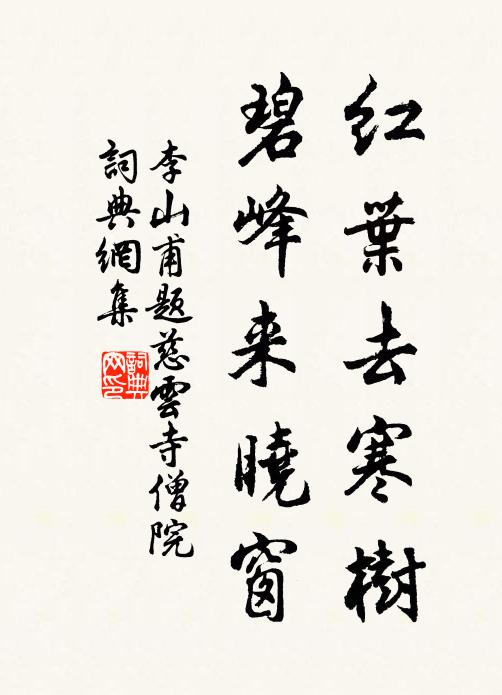 红葉去寒樹
碧峰来曉窗
李山甫题慈雲寺僧院
詞典網集
詞典网印